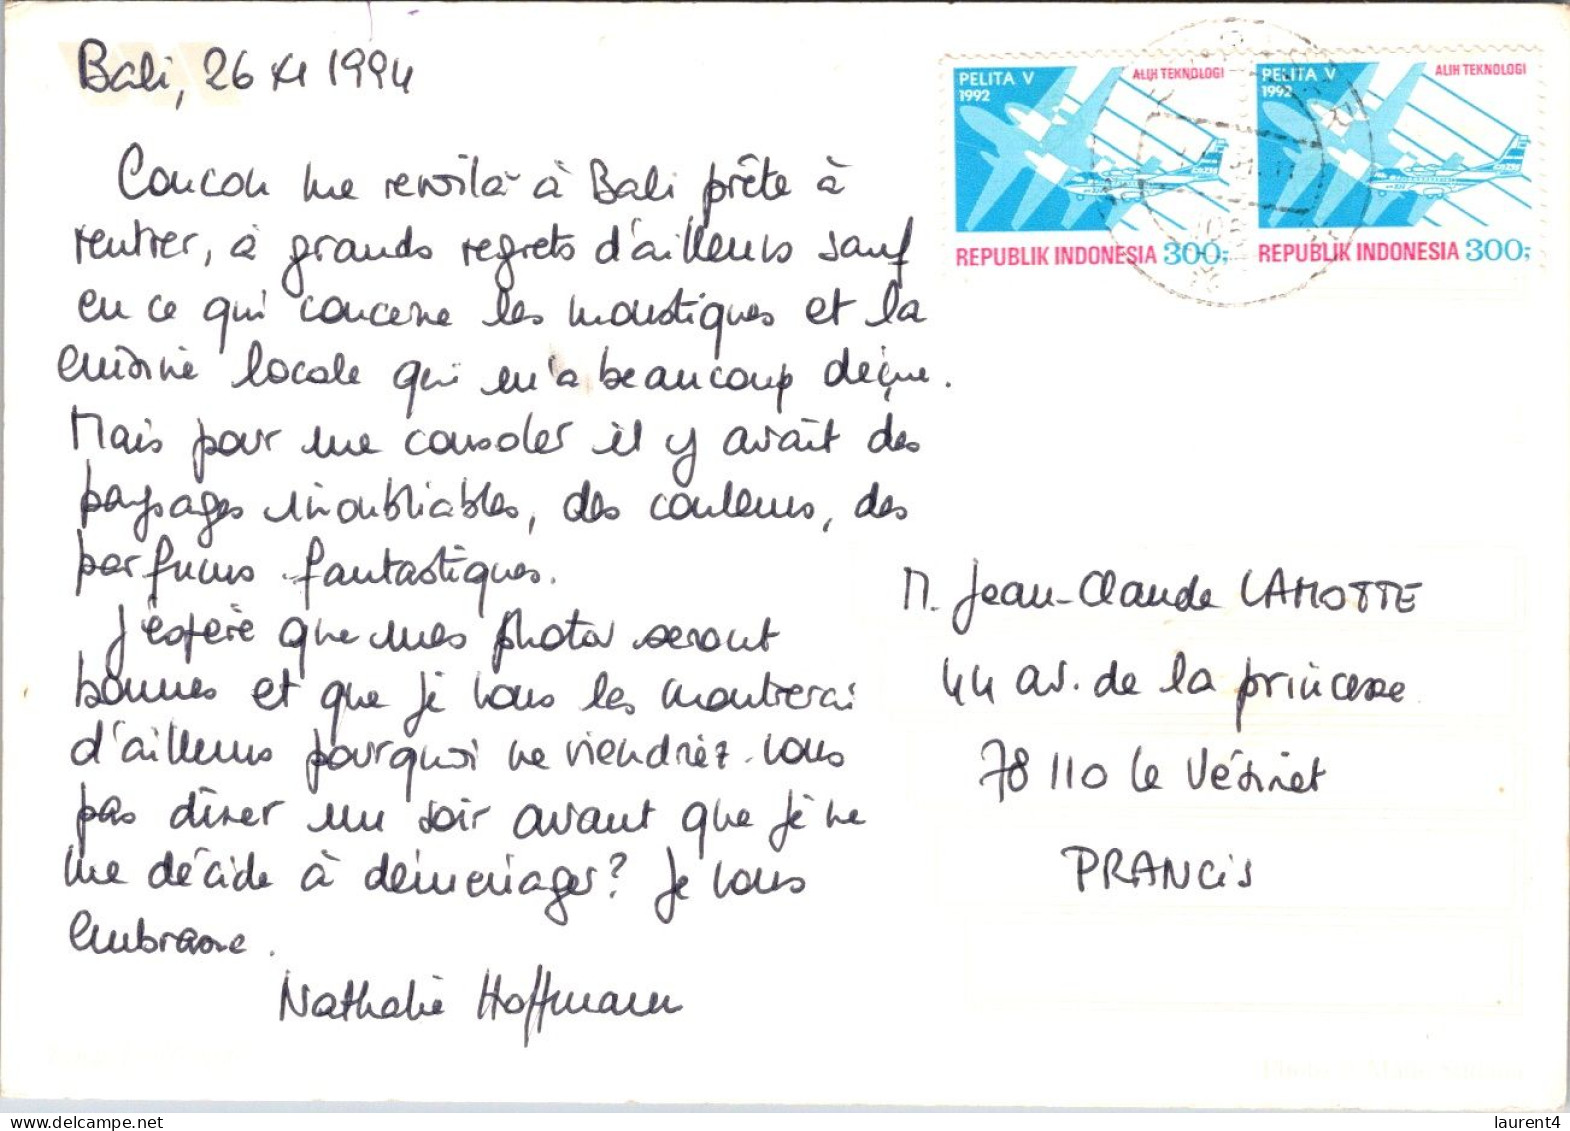 Bali, 26 XI 1994
Coucou me revoilà à Bali prête à
rentrer, à grands regrets d'ailleurs sauf
en ce qui concerne les moustiques et la
cuisine locale qui m'a beaucoup déçue.
Mais pour me consoler il y avait des
paysages inoubliables, des couleurs, des
parfums fantastiques.
J'espère que mes photos seront
bonnes et que je vous les montrerai
d'ailleurs pourquoi ne viendriez-vous
pas dîner un soir avant que je ne
me décide à déménager? Je vous
embrasse.
Nathalie Hoffmann
PELITA V
1992
ALIH TEKNOLOGI
REPUBLIK INDONESIA 300;
PELITA V
1992
ALIH TEKNOLOGI
REPUBLIK INDONESIA 300;
M. Jean-Claude LAMOTTE
44 av. de la princesse
78110 Le Vésinet
PRANCIS
laurent4